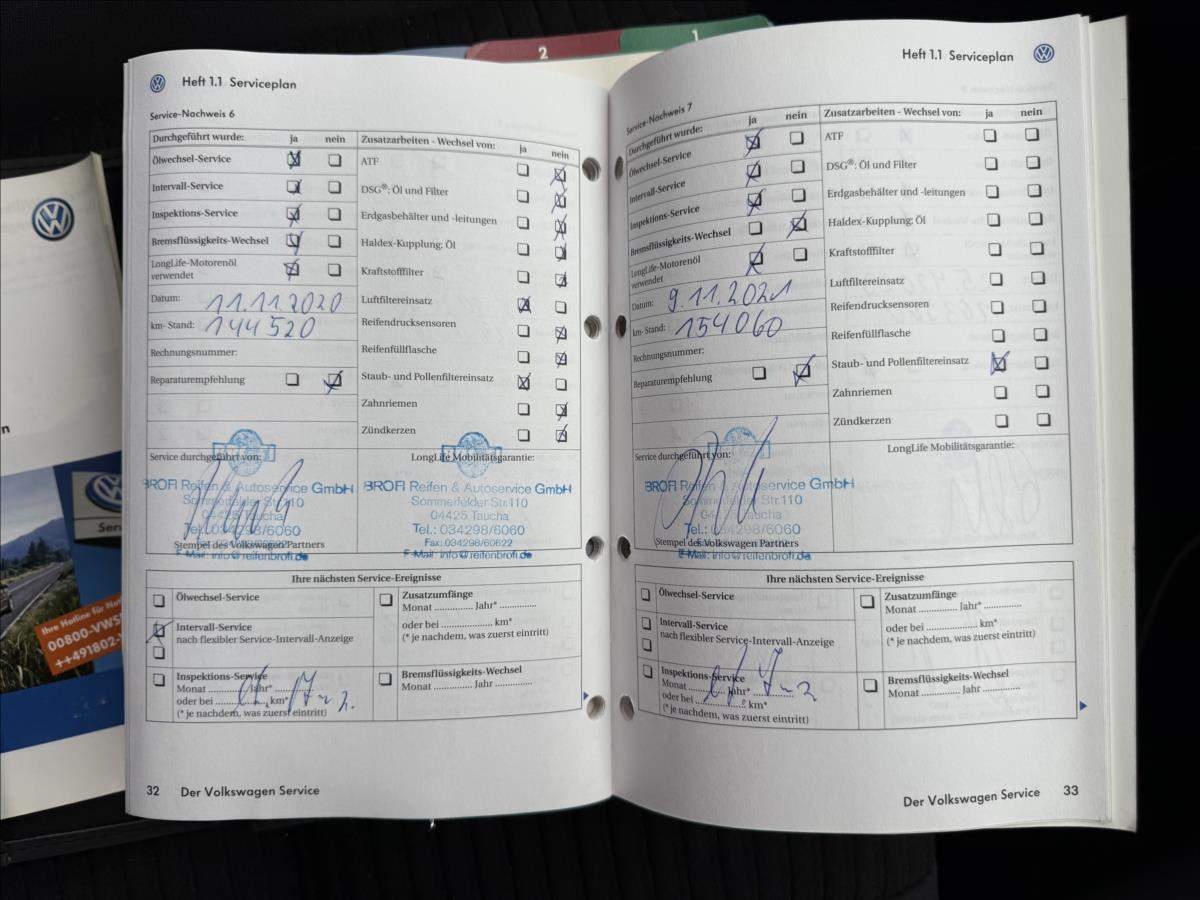 2
1
Heft 1.1 Serviceplan
Service-Nachweis 6
Durchgeführt wurde: ja nein
Ölwechsel-Service
Intervall-Service
Inspektions-Service
Bremsflüssigkeits-Wechsel
LongLife-Motorenöl
verwendet
Datum: 11.11.2020
km-Stand: 144520
Rechnungsnummer:
Reparaturempfehlung
Zusatzarbeiten - Wechsel von: ja nein
ATF
DSG®: Öl und Filter
Erdgasbehälter und -leitungen
Haldex-Kupplung: Öl
Kraftstofffilter
Luftfiltereinsatz
Reifendrucksensoren
Reifenfüllflasche
Staub- und Pollenfiltereinsatz
Zahnriemen
Zündkerzen
Service durchgeführt von:
PROFI Reifen & Autoservice GmbH
Sommerfelder Str.110
04425 Taucha
Tel.: 034298/6060
Stempel des Volkswagen Partners
E-Mail: info@reifenbrofi.de
LongLife Mobilitätsgarantie:
PROFI Reifen & Autoservice GmbH
Sommerfelder Str.110
04425 Taucha
Tel.: 034298/6060
Fax: 034298/60622
E-Mail: info@reifenbrofi.de
Ihre nächsten Service-Ereignisse
Ölwechsel-Service
Intervall-Service
nach flexibler Service-Intervall-Anzeige
Inspektions-Service
Monat .............. Jahr* ..............
oder bei ...................... km*
(* je nachdem, was zuerst eintritt)
Zusatzumfänge
Monat .............. Jahr* ..............
oder bei ...................... km*
(* je nachdem, was zuerst eintritt)
Bremsflüssigkeits-Wechsel
Monat .............. Jahr ..............
32 Der Volkswagen Service
Heft 1.1 Serviceplan
Service-Nachweis 7
Durchgeführt wurde: ja nein
Ölwechsel-Service
Intervall-Service
Inspektions-Service
Bremsflüssigkeits-Wechsel
LongLife-Motorenöl
verwendet
Datum: 9.11.2021
km-Stand: 154060
Rechnungsnummer:
Reparaturempfehlung
Zusatzarbeiten - Wechsel von: ja nein
ATF
DSG®: Öl und Filter
Erdgasbehälter und -leitungen
Haldex-Kupplung: Öl
Kraftstofffilter
Luftfiltereinsatz
Reifendrucksensoren
Reifenfüllflasche
Staub- und Pollenfiltereinsatz
Zahnriemen
Zündkerzen
Service durchgeführt von:
PROFI Reifen & Autoservice GmbH
Sommerfelder Str.110
04425 Taucha
Tel.: 034298/6060
Stempel des Volkswagen Partners
E-Mail: info@reifenbrofi.de
LongLife Mobilitätsgarantie:
Ihre nächsten Service-Ereignisse
Ölwechsel-Service
Intervall-Service
nach flexibler Service-Intervall-Anzeige
Inspektions-Service
Monat .............. Jahr* ..............
oder bei ...................... km*
(* je nachdem, was zuerst eintritt)
Zusatzumfänge
Monat .............. Jahr* ..............
oder bei ...................... km*
(* je nachdem, was zuerst eintritt)
Bremsflüssigkeits-Wechsel
Monat .............. Jahr ..............
Der Volkswagen Service 33
Ihre Hotline für
00800-VWS
++491802-